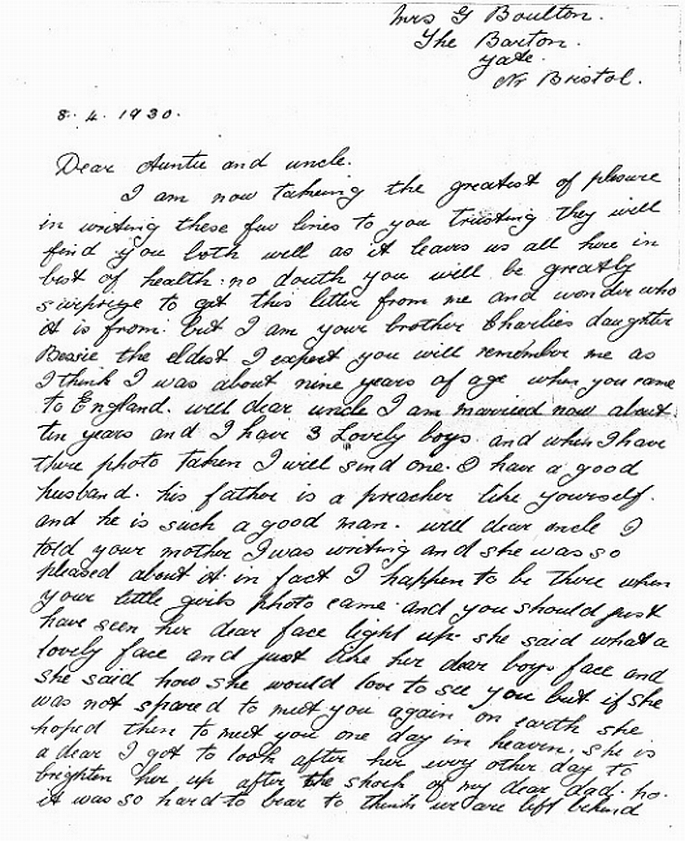 Mrs G Boulton.
The Barton.
Yate.
Nr Bristol.
8. 4. 1930.
Dear Auntie and uncle.
I am now takeing the greatest of plesure
in writing these few lines to you trusting they will
find you both well as it leaves us all here in
best of health: no douth you will be greatly
surprize to get this letter from me and wonder who
it is from: but I am your brother Charlies daughter
Bessie the eldest I expect you will remember me as
I think I was about nine years of age when you came
to England. well dear uncle I am married now about
ten years and I have 3 Lovely boys and when I have
there photo taken I will send one. I have a good
husband. his father is a preacher like yourself.
and he is such a good man. well dear uncle I
told your mother I was writing and she was so
pleased about it in fact I happen to be there when
your little girls photo came and you should just
have seen her dear face light up: she said what a
lovely face and just like her dear boys face and
she said how she would love to see you but if she
was not spared to meet you again on earth she
hoped then to meet you one day in heaven. she is
a dear I got to look after her every other day to
brighten her up after the shock of my dear dad. ho.
it was so hard to bear to think we are left behind